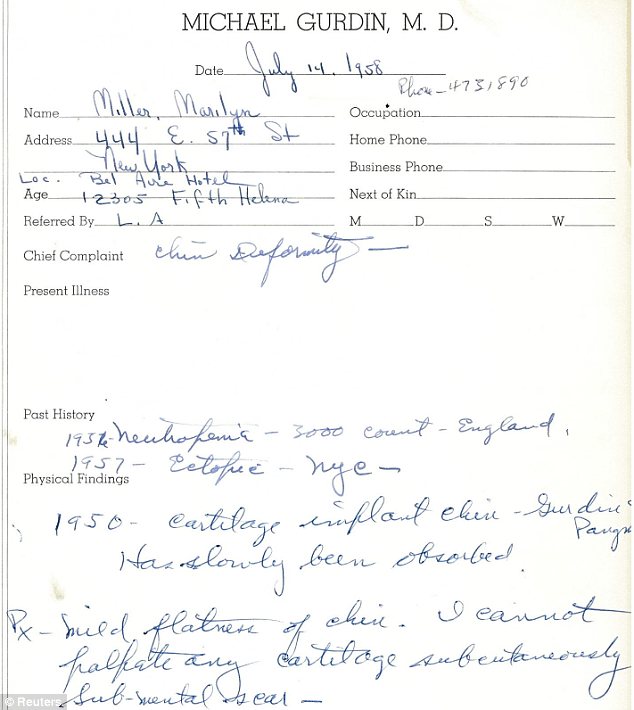 MICHAEL GURDIN, M. D.
Date July 14, 1958
Phone - 4731890
Name Miller, Marilyn Occupation
Address 444 E. 57th St Home Phone
New York Business Phone
Loc. Bel Aire Hotel
Age 12305 Fifth Helena Next of Kin
Referred By L. A M D S W
Chief Complaint Chin Deformity —
Present Illness
Past History
1956 - Neutropenia - 3000 count - England,
1957 - Ectopic - NYC -
Physical Findings
1950 - cartilage implant chin - Gurdin
Has slowly been absorbed.
Px - Mild flatness of chin. I cannot
palpate any cartilage subcutaneously
Sub-mental scar -
© Reuters